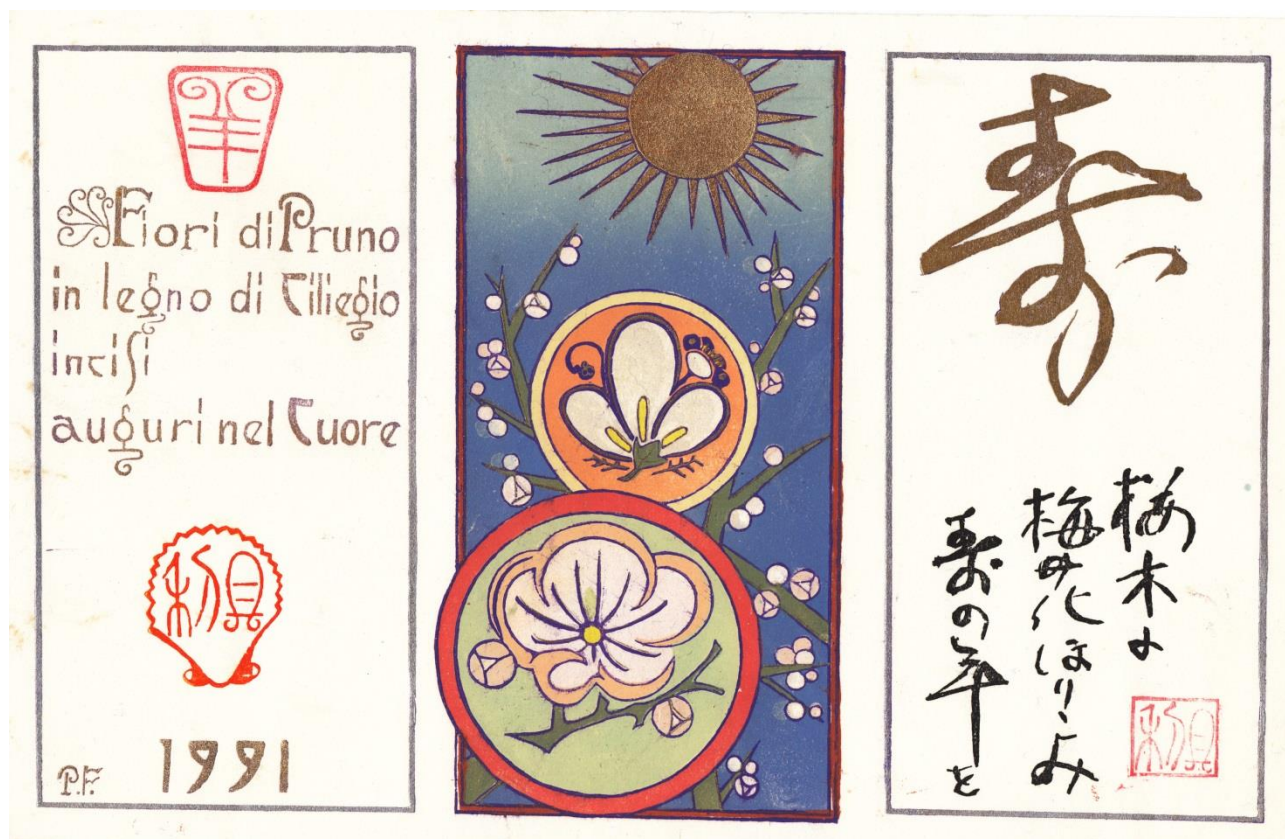 羊
Fiori di Pruno
in legno di Ciliegio
inciſi
auguri nel Cuore
1991
P.F.
寿
桜木に
梅の花ほりこみ
寿の年を